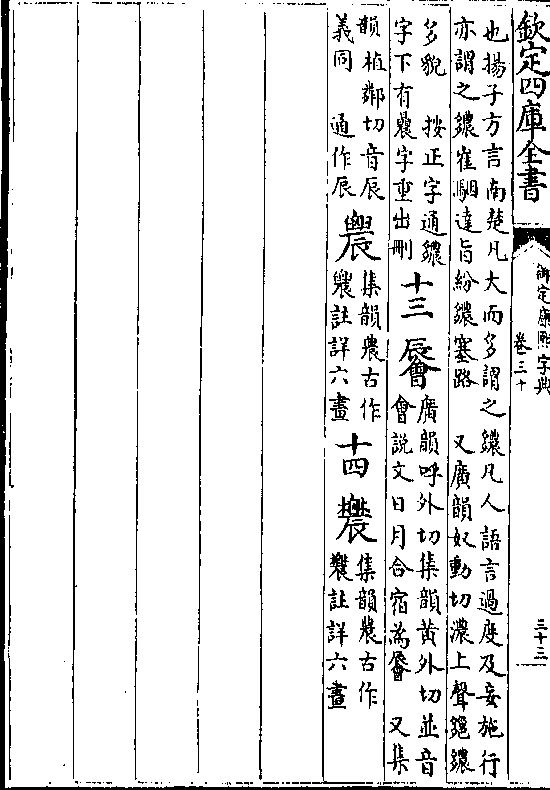 欽定四庫全書
御定康熙字典
卷三十
三十三
也揚子方言南楚凡大而多謂之繷凡人語言過度及妄施行
亦謂之繷崔駰達旨紛繷塞路 又廣韻奴動切濃上聲繷
多貌 按正字通繷
字下有字重出刪
十三
䢈
廣韻呼外切集韻黄外切並音
會說文日月合宿爲䢈 又集
韻植鄰切音辰
義同 通作辰
集韻農古作
註詳六畫
十四
集韻農古作
註詳六畫